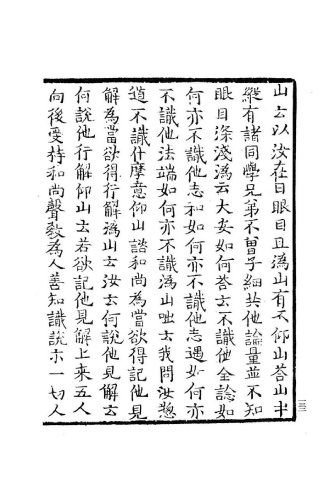 山云以汝在日眼目且溈山有不仰山荅山中
縱有諸同學兄弟不曾子細共他論量並不知
眼目深淺溈云大安如何荅云不識他全諗如
何亦不識他志和如何亦不識他志遇如何亦
不識他法端如何亦不識溈山咄云我問汝惣
道不識什摩意仰山諮和尚為當欲得記他見
解為當欲得行解溈山云汝云何說他見解云
何說他行解仰山云若欲記他見解上來五人
向後受持和尚聲教為人善知識說示一切人